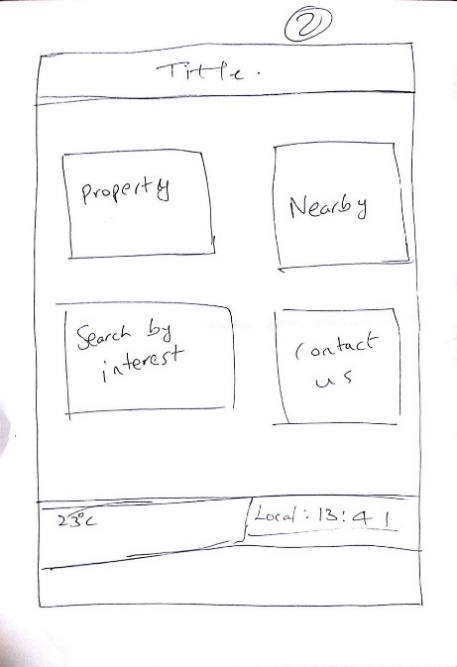 2
Title.
Property
Nearby
Search by
interest
Contact
us
23°c
Local: 13:41